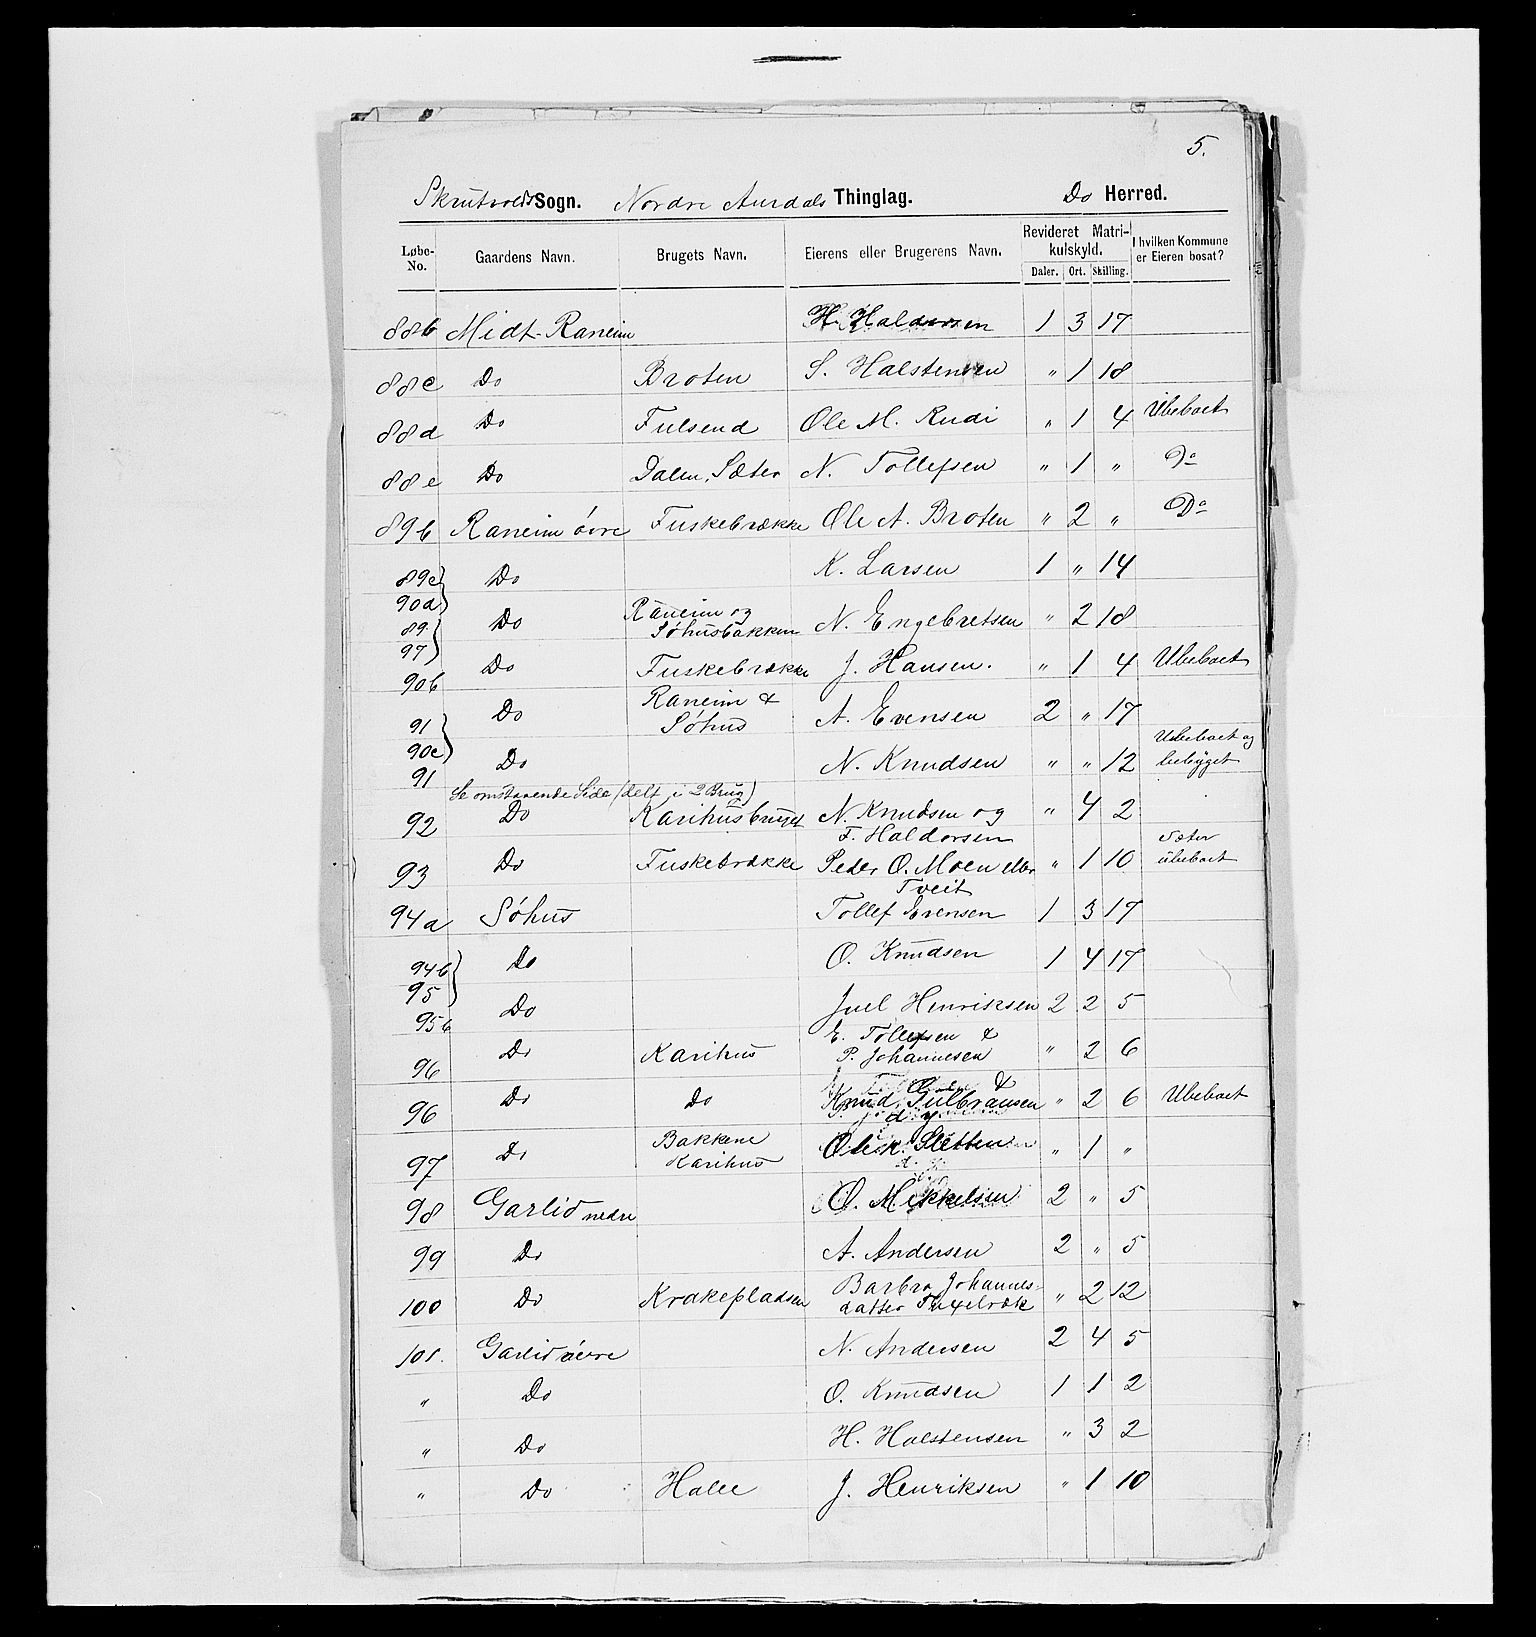 5.
Skrutvolds Sogn. Nordre Aurdals Thinglag. Do Herred.
Løbe-No. Gaardens Navn. Brugets Navn. Eierens eller Brugerens Navn. Revideret Matrikulskyld. Daler. Ort. Skilling. I hvilken Kommune er Eieren bosat?
88b Midt-Raneim H. Haldorsen 1 3 17
88c Do Broten S. Halstensen " 1 18
88d Do Fulsend Ole M. Rudi " 1 4 Ubeboet
88e Do Dalen, Sæter N. Tollefsen " 1 " Do
89b Raneim övre Fuskebrække Ole A. Broten " 2 " Do
89c 90d Do K. Larsen 1 " 14
89 97 Do Raneim og Söhusbakken N. Engebretsen " 2 18
90b Do Fuskebrække J. Hansen. " 1 4 Ubeboet
91 90c Do Raneim & Söhus A. Evensen 2 " 17
91 Do N. Knudsen " " 12 Ubeboet og bebygget
Se omstaaende Side (delt i 2 Brug)
92 Do Karihusbruget N. Knudsen og F. Haldorsen " 4 2
93 Do Fuskebrække Peder O. Moen eller Tveit " 1 10 Sæter ubeboet
94a Söhus Tollef Evensen 1 3 17
94b 95 Do O. Knudsen 1 4 17
95b Do Juel Henriksen 2 2 5
96 Do Karihus E. Tollefsen & P. Johannesen " 2 6
96 Do Do Knud Gulbransen " 2 6 Ubeboet
97 Do Bakkene Karihus Ole K. Sletten " 1 "
98 Garlid nedre O. Mikkelsen 2 " 5
99 Do A. Andersen 2 " 5
100 Do Krakepladsen Barbro Johannesdatter " 2 12
101. Garlid övre N. Andersen 2 4 5
" Do O. Knudsen 1 1 2
" Do H. Halstensen " 3 2
" Do Halle J. Henriksen " 1 10